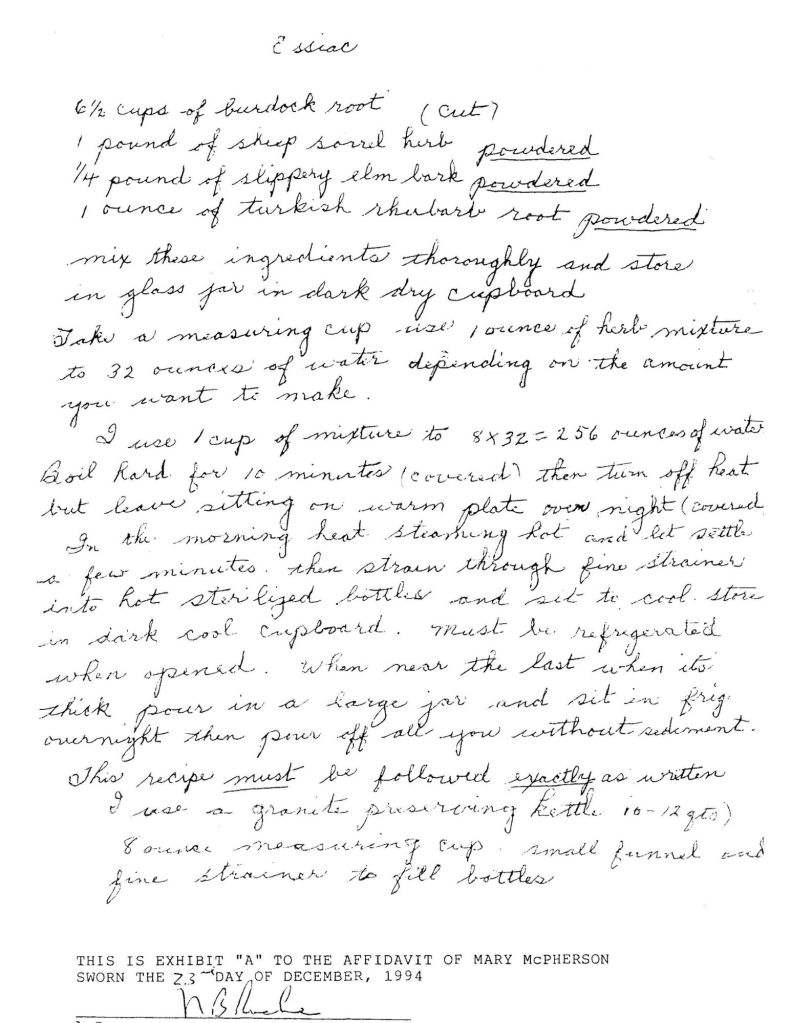 Essiac
6½ cups of burdock root (cut)
1 pound of sheep sorrel herb powdered
¼ pound of slippery elm bark powdered
1 ounce of turkish rhubarb root powdered
mix these ingredients thoroughly and store
in glass jar in dark dry cupboard
Take a measuring cup use 1 ounce of herb mixture
to 32 ounces of water depending on the amount
you want to make.
I use 1 cup of mixture to 8X32=256 ounces of water
Boil hard for 10 minutes (covered) then turn off heat
but leave sitting on warm plate over night (covered
In the morning heat steaming hot and let settle
a few minutes. then strain through fine strainer
into hot sterilized bottles and sit to cool. store
in dark cool cupboard. Must be refrigerated
when opened. When near the last when its
thick pour in a large jar and sit in frig
overnight then pour off all you without sediment.
This recipe must be followed exactly as written
I use a granite preserving kettle 10-12 qts)
8 ounce measuring cup. small funnel and
fine strainer to fill bottles
THIS IS EXHIBIT "A" TO THE AFFIDAVIT OF MARY McPHERSON
SWORN THE 23rd DAY OF DECEMBER, 1994